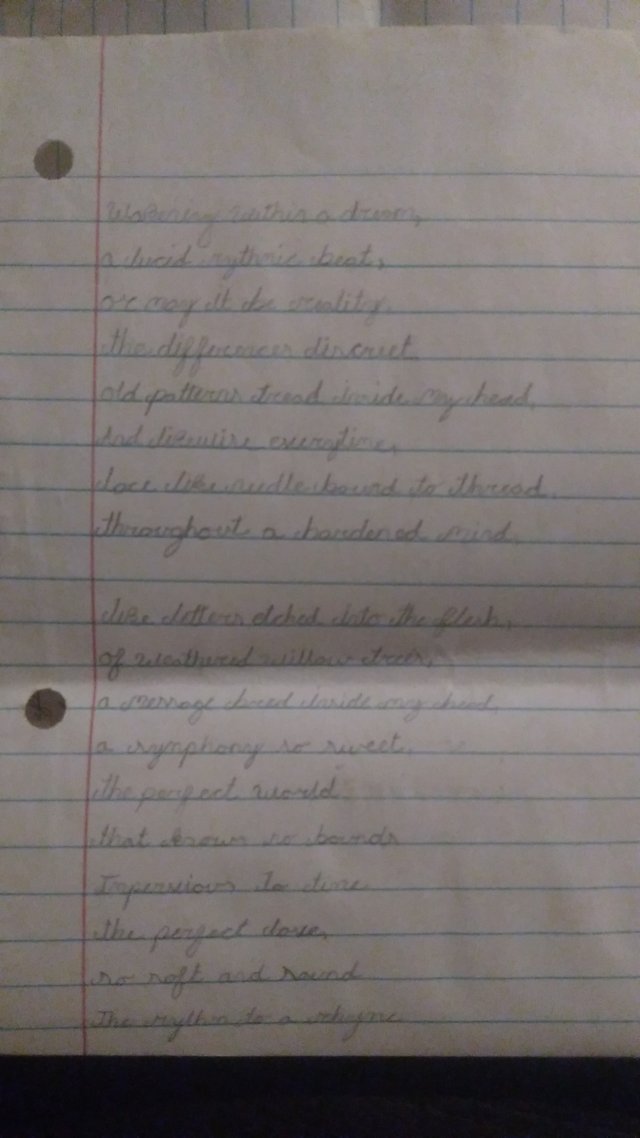 Wakening within a dream,
a lucid rythmic beat,
or may it be reality,
the differences discreet
old patterns tread inside my head,
And likewise everytime,
lace like needle bound to thread,
throughout a hardened mind,
like letters etched into the flesh,
of weathered willow trees,
a message bred inside my head,
a symphony so sweet,
the perfect world
that knows no bounds
Impervious to time
the perfect love,
so soft and sound
The rythm to a rhyme